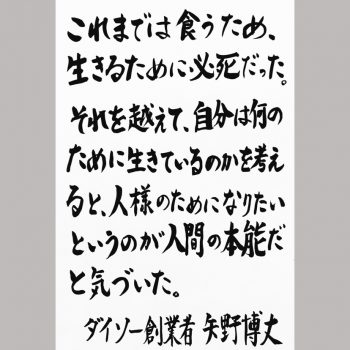 これまでは食うため、
生きるために必死だった。
それを越えて、自分は何の
ために生きているのかを考え
ると、人様のためになりたい
というのが人間の本能だ
と気づいた。
ダイソー創業者 矢野博丈